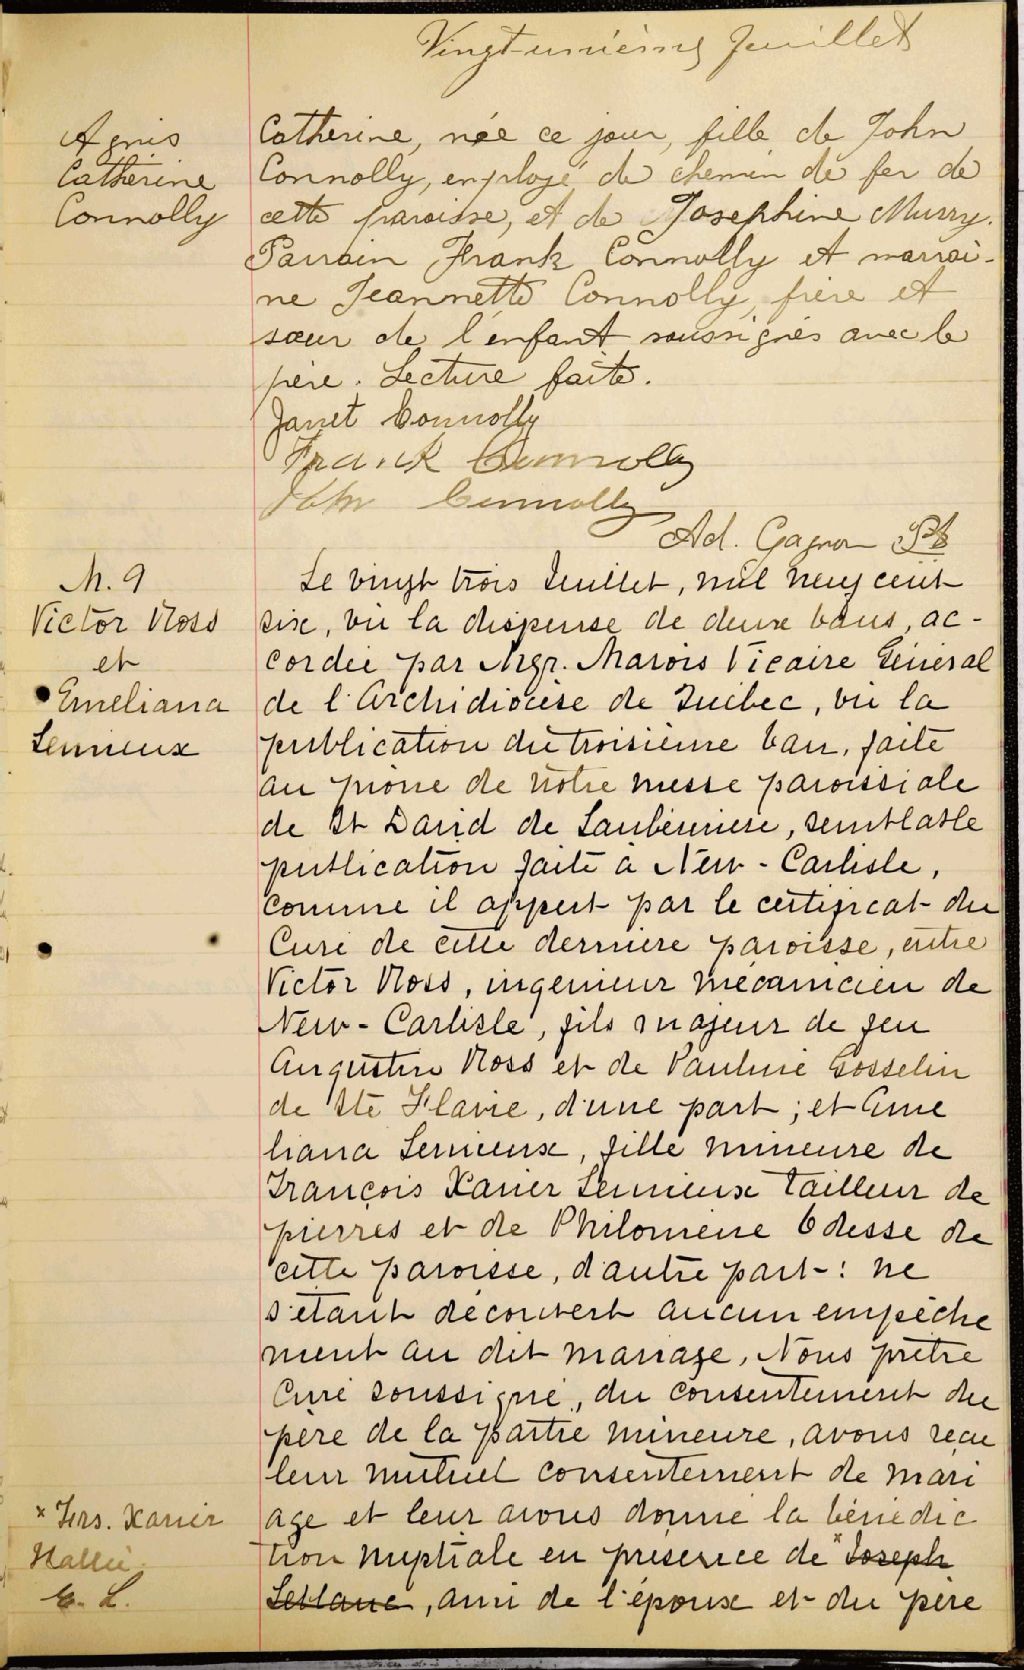 Vingt-unième Juillet
Agnis
Catherine
Connolly
Catherine, née ce jour, fille de John
Connolly, employé de chemin de fer de
cette paroisse, et de Josephine Murry.
Parrain Frank Connolly et marrai-
ne Jeannette Connolly, frère et
sœur de l'enfant soussignés avec le
père. Lecture faite.
Janet Connolly
Frank Connolly
John Connolly
Ad. Gagnon Ptr
M. 9
Victor Ross
et
Emeliana
Lemieux
Le vingt trois Juillet, mil neuf cent
six, vu la dispense de deux bans, ac-
cordée par Mgr. Marois Vicaire Général
de l'Archidiocèse de Québec, vu la
publication du troisième ban, faite
au prône de nôtre messe paroissiale
de St David de Laubérivière, semblable
publication faite à New-Carlisle,
comme il appert par le certificat du
Curé de cette dernière paroisse, entre
Victor Ross, ingenieur mécanicien de
New-Carlisle, fils majeur de feu
Augustin Ross et de Pauline Gosselin
de Ste Flavie, d'une part; et Eme
liana Lemieux, fille mineure de
François Xavier Lemieux tailleur de
pierres et de Philomène Odesse de
cette paroisse, d'autre part: ne
s'étant découvert aucun empêche
ment au dit mariage, Nous prêtre
Curé soussigné, du consentement du
père de la partie mineure, avons reçu
leur mutuel consentement de mari
age et leur avons donné la bénédic
tion nuptiale en présence de x Joseph
Leblanc, ami de l'époux et du père
x Frs. Xavier
Hallé
E. L.